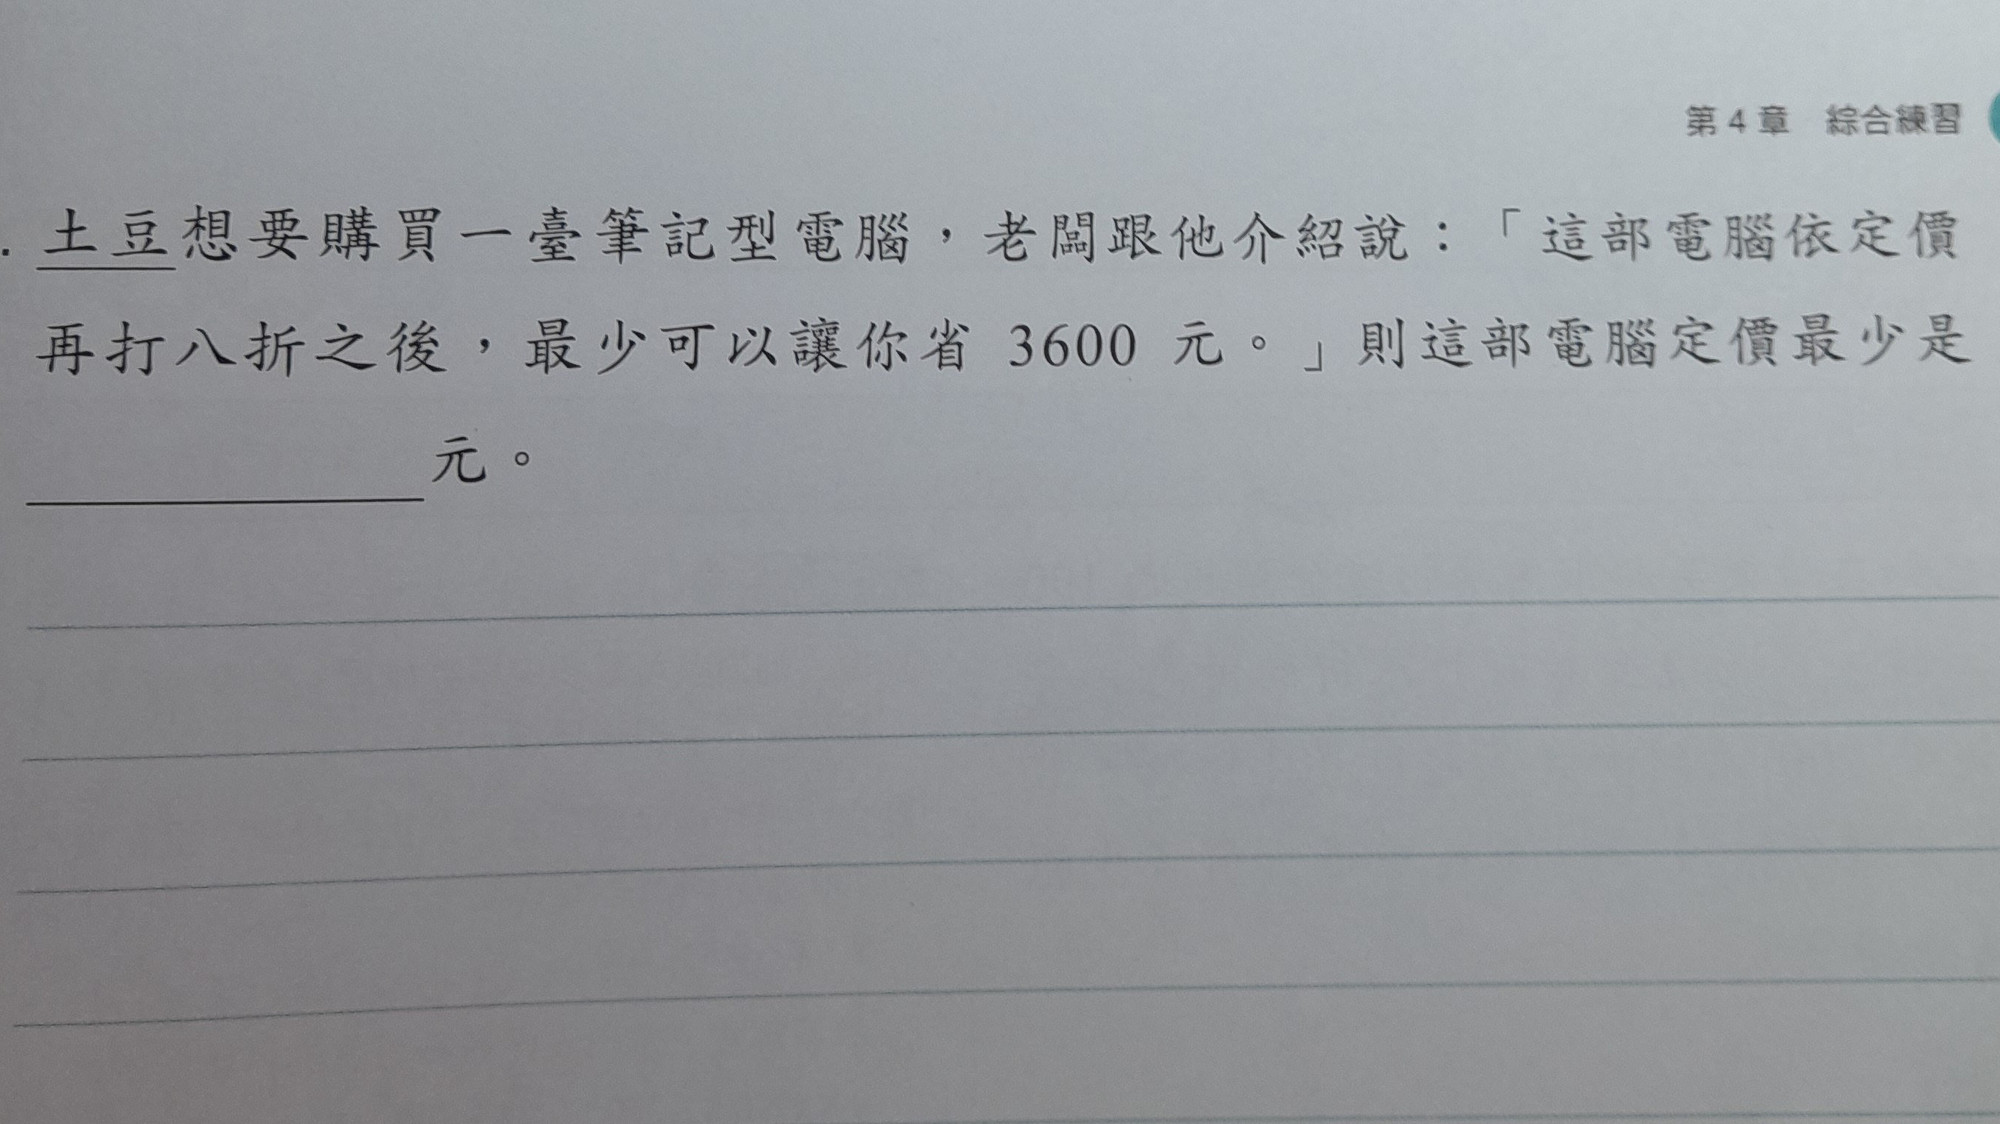 第 4 章　綜合練習
. 土豆想要購買一臺筆記型電腦，老闆跟他介紹說：「這部電腦依定價
再打八折之後，最少可以讓你省 3600 元。」則這部電腦定價最少是
＿＿＿＿＿＿元。